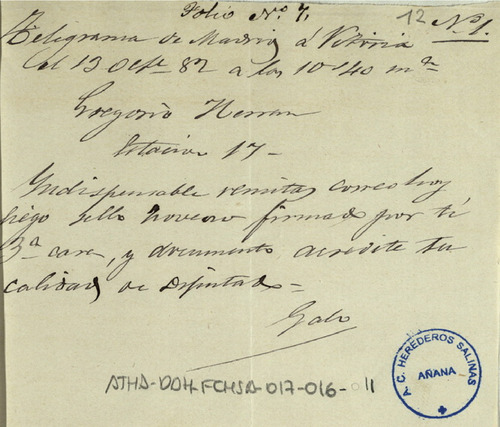 Folio Nº 7.
12 Nº 1.
Telegrama de Madrid á Vitoria
el 13 Octe 82 a las 10-40 mña
Gregorio Herran
Estacion 17-
Indispensable remitas correo hoy
pliego sello noveno firmado por tí
3ª cara, y documento acredite tu
calidad de Diputado=
Galo
ATHA-DDH-FCHSA-017-016-011
A.C. HEREDEROS SALINAS
AÑANA